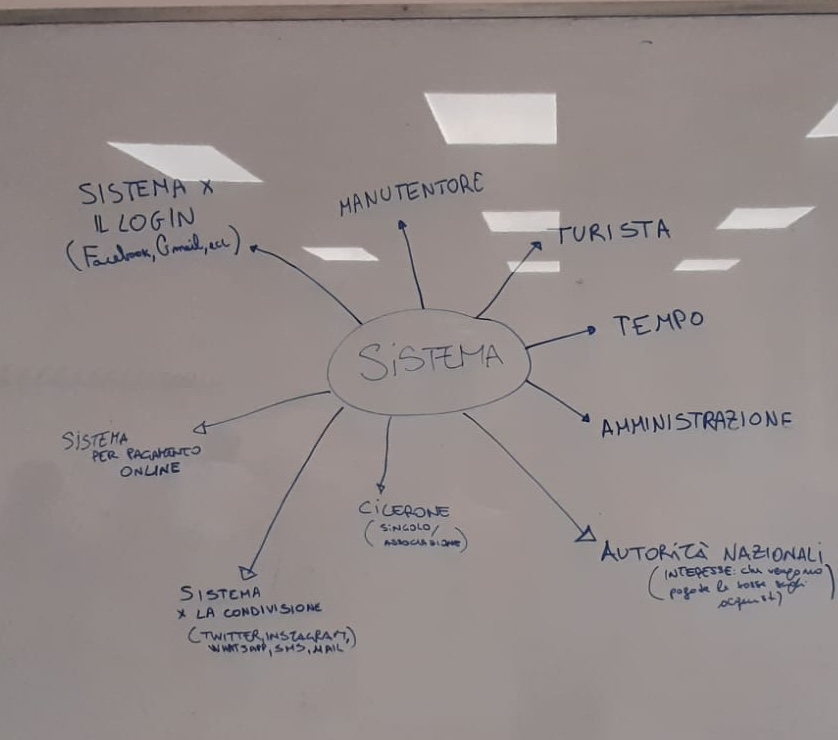 SISTEMA x
IL LOGIN
(Facebook, Gmail, ecc)
MANUTENTORE
TURISTA
TEMPO
SiSTEMA
AMMINISTRAZIONE
SiSTEMA
PER PAGAMENTO
ONLINE
CiCERONE
(SiNGOLO/
ASSOCIAZIONE)
AUTORiTÀ NAZIONALI
(INTERESSE: che vengano
pagate le tasse sugli
acquisti)
SISTEMA
x LA CONDIVISIONE
(TWITTER, INSTAGRAM,
WHATSAPP, SMS, MAIL)